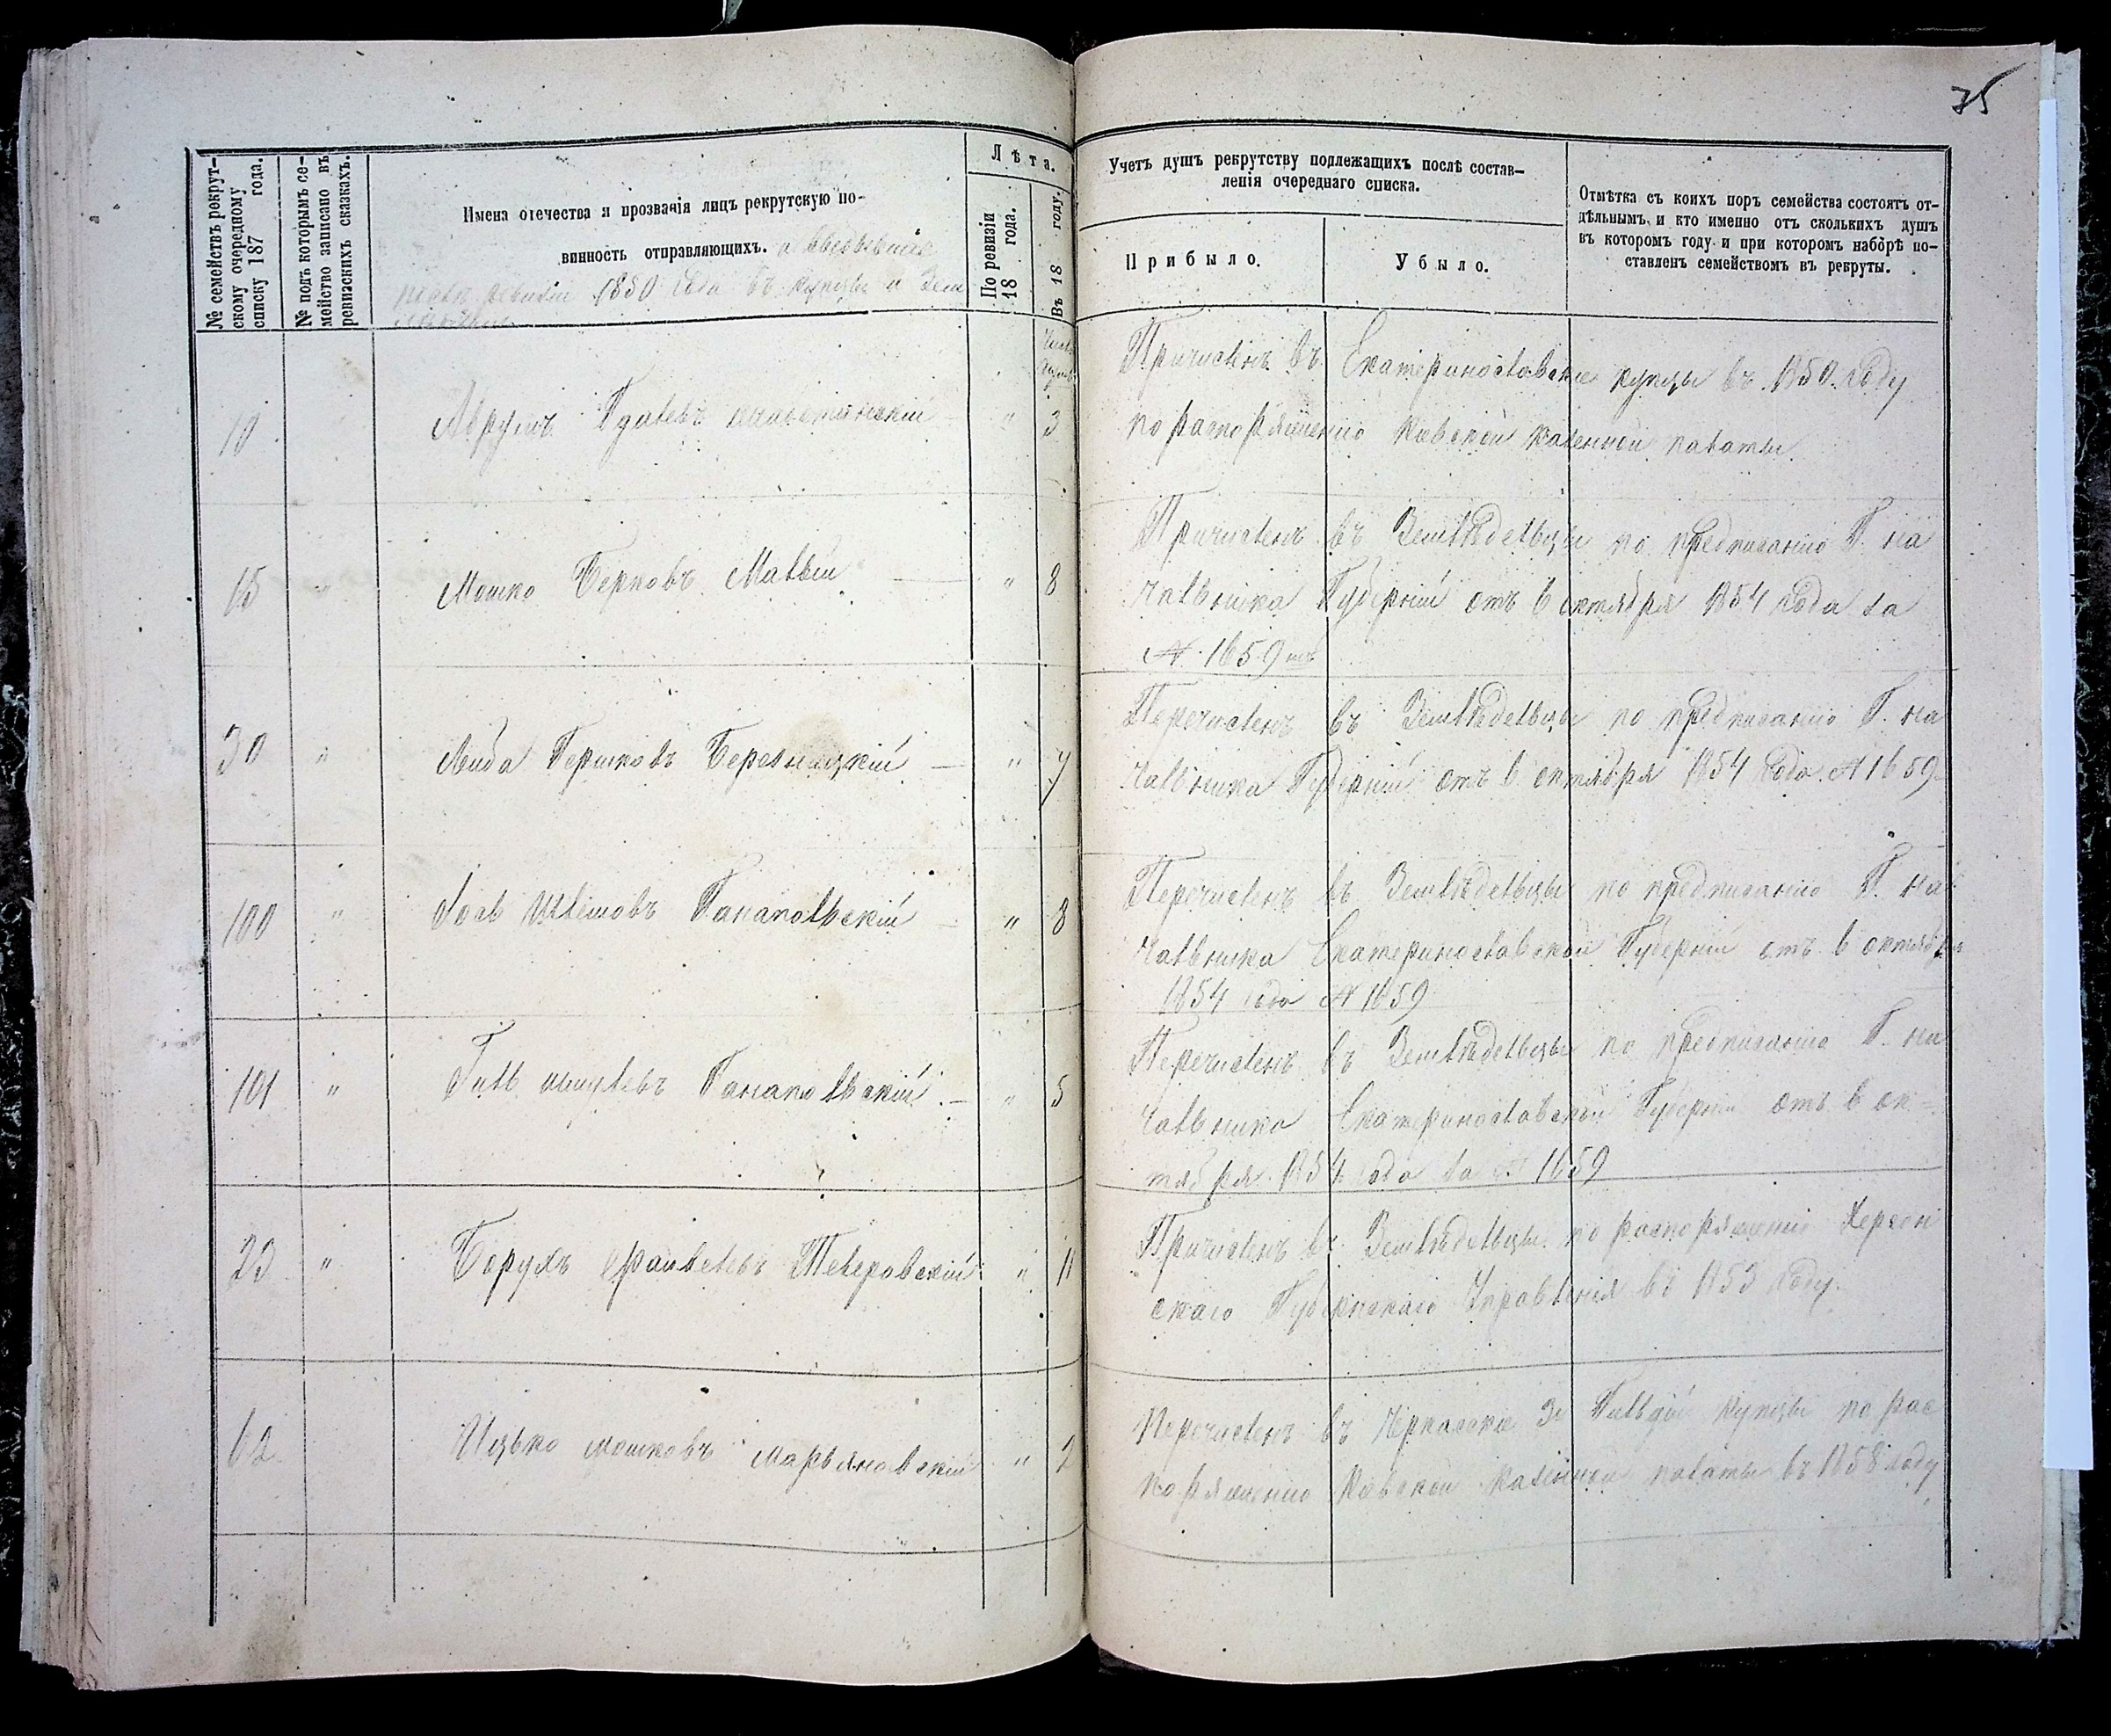 75
№ семействъ рекрут-
скому очередному
списку 187 года.
№ подъ которымъ се-
мейство записано въ
ревизскихъ сказкахъ.
Имена отечества и прозванія лицъ рекрутскую по-
винность отправляющихъ.
1850 года въ купцы и Зем
Лѣта.
По ревизіи
18 года.
Въ 18 году.
Учетъ душъ рекрутству подлежащихъ послѣ состав-
ленія очереднаго списка.
Прибыло.
Убыло.
Отмѣтка съ коихъ поръ семейства состоятъ от-
дѣльнымъ и кто именно отъ сколькихъ душъ
въ котором году и при которомъ наборѣ по-
ставленъ семействомъ въ рекруты.
Аврумъ " 3
Причисленъ въ Екатеринославские купцы въ 1850 Году
по распоряжению Киевской Казенной палаты
15 " Мошко Берковъ Малый " 8
Причисленъ въ Земледельцы по предписанию Г. на
чальника Губерніи отъ 6 октября 1854 Года за
№ 1659
30 " Лейба Гершковъ " 7
Перечисленъ въ Земледельцы по предписанию Г. на
чальника Губерніи отъ 6 октября 1854 Года № 1659
100 " Канапольскій " 8
Перечисленъ въ Земледельцы по предписанию Г. на
чальника Екатеринославской Губерніи отъ 6 октября
1854 года № 1659
101 " Канапольскій " 5
Перечисленъ въ Земледельцы по предписанию Г. на
чальника Екатеринославской Губерніи отъ 6 ок-
тября 1854 года за № 1659
23 " Борухъ " 11
Причисленъ въ Земледельцы по распоряжению Херсон
скаго Губернскаго Управленія въ 1853 Году.
62 Ицько Мошковъ Марьяновскій " 2
Перечисленъ въ Черкаские 3й Гильдіи купцы по рас
поряжению Киевской Казенной палаты въ 1858 году